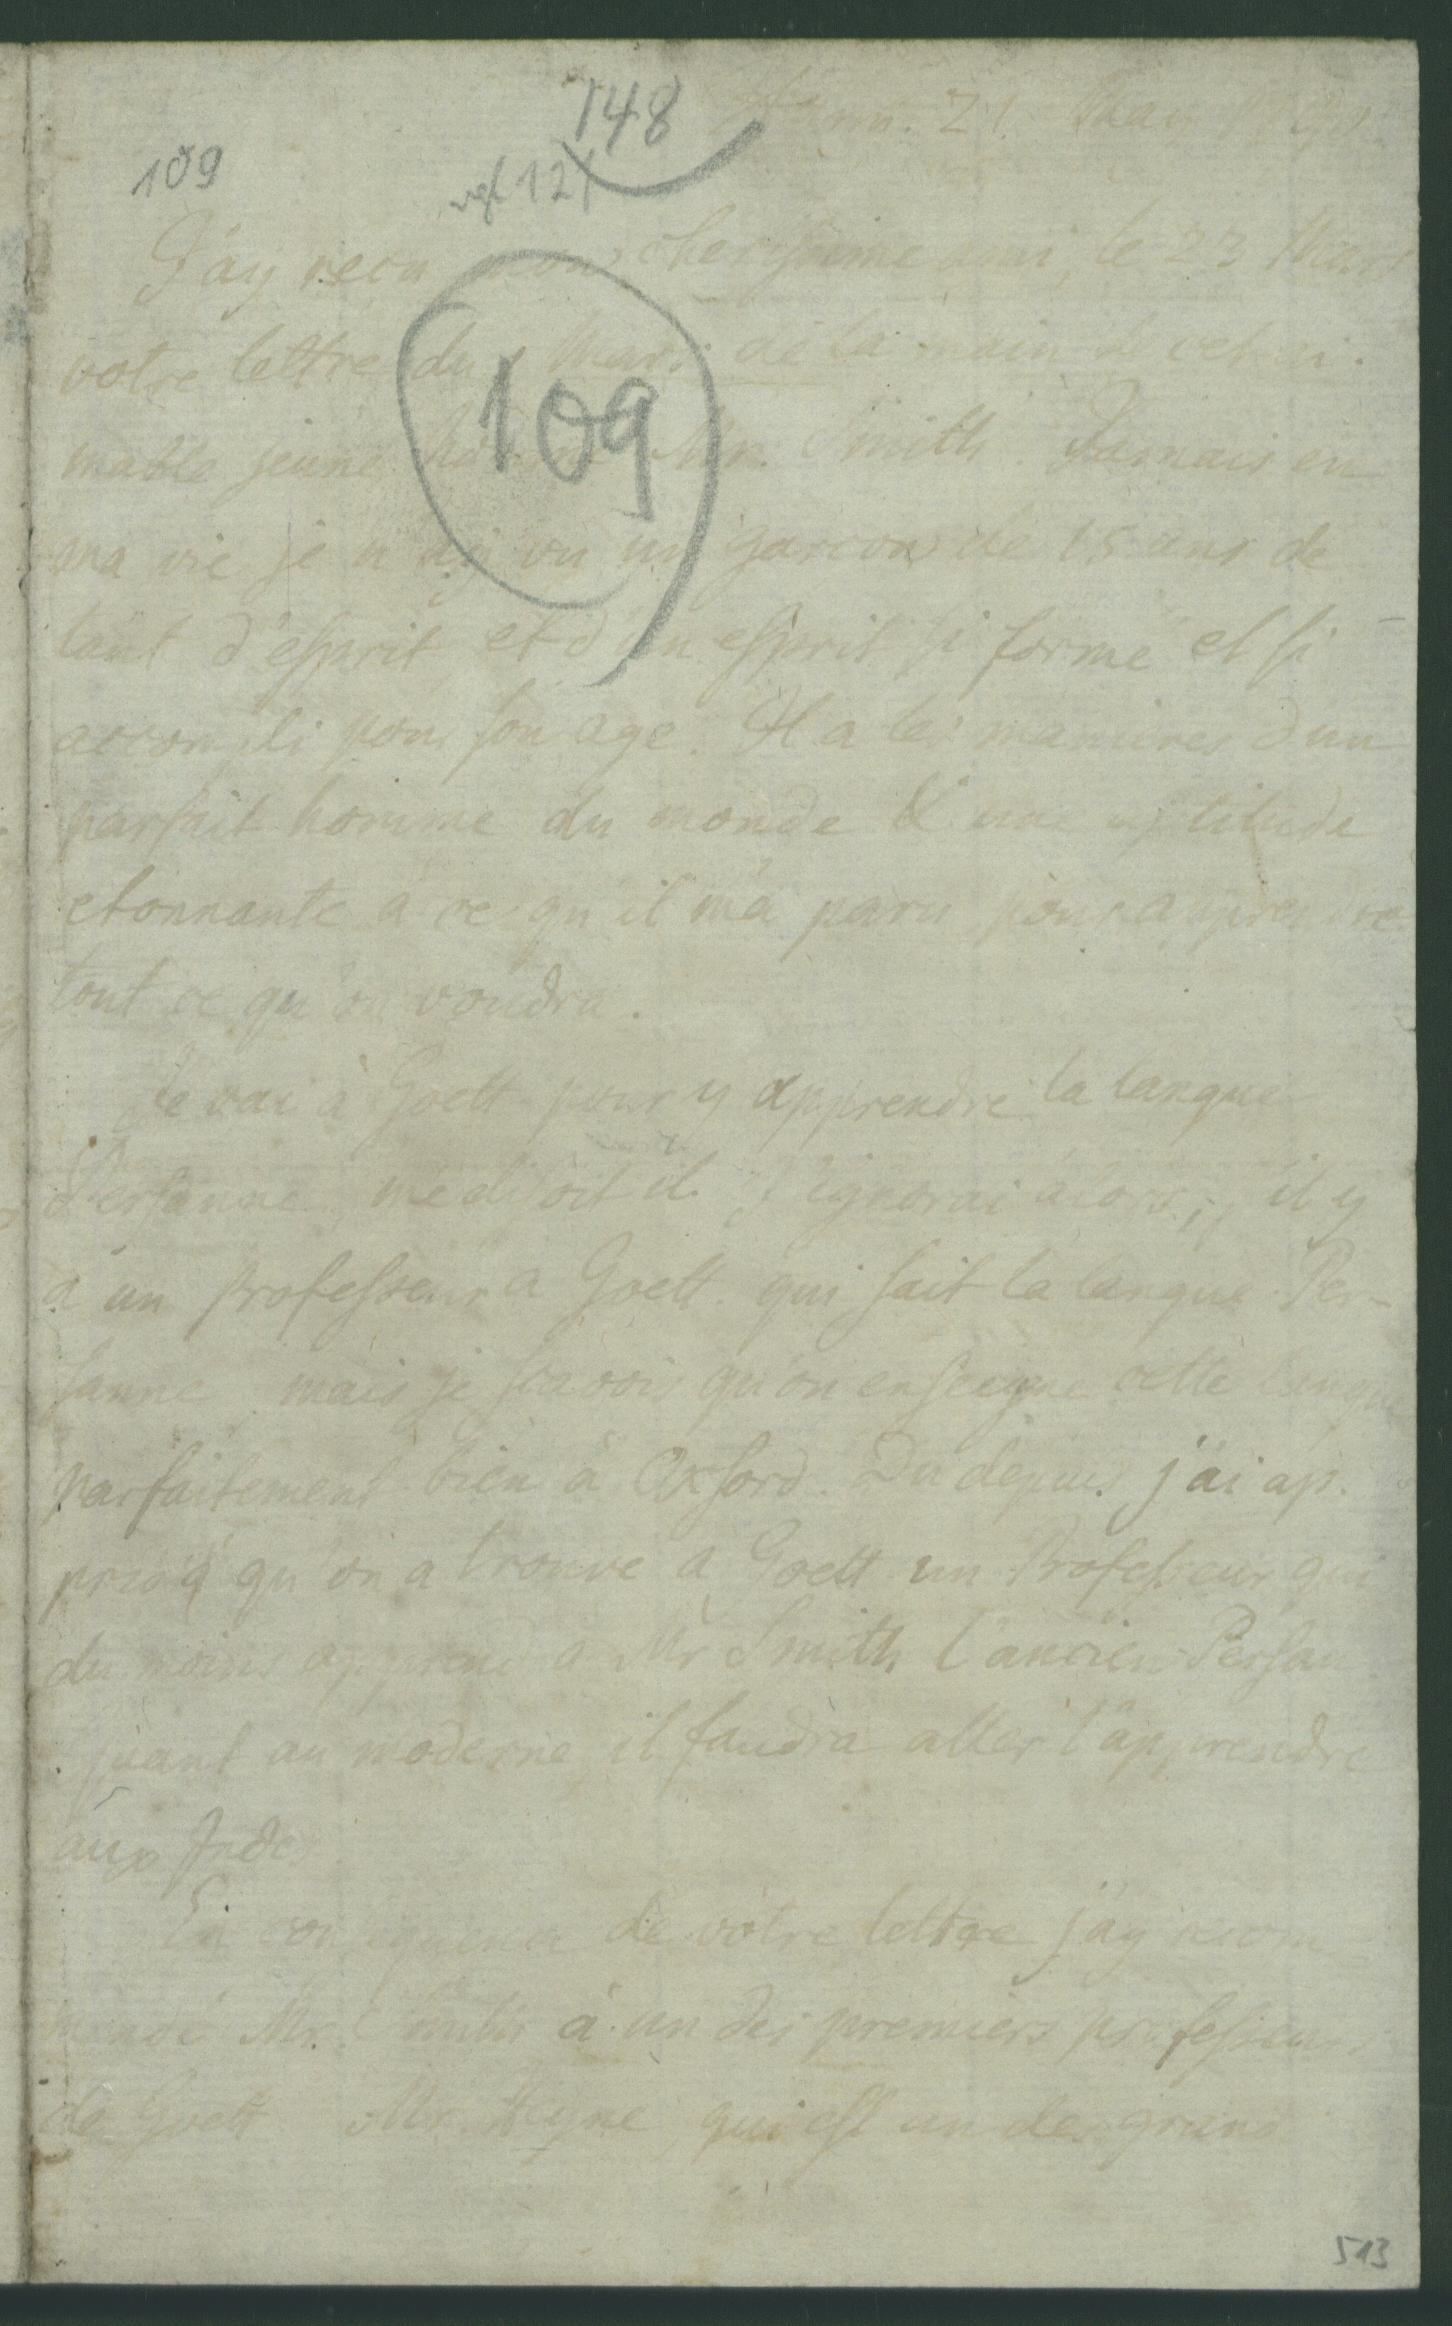 148
Hann. 21. May
109
vgl 121
J'ay recu mon cherissime ami, le 22 Mars
109
votre lettre du Mars de la main de cet ai-
mable jeune homme Mr. Smith. Jamais en
ma vie je n'ay vu un garcon de 15 ans de
tant d'esprit et d'un esprit si formé et si
accompli pour son age. Il a les manieres d'un
parfait homme du monde & une aptitude
etonnante à ce qu'il m'a paru pour apprendre
tout ce qu'on voudra.
Je vai à Goett pour y apprendre la langue
Persanne, me disoit il. J'ignorai alors, il y
a un Professeur a Goett. qui sait la langue Per-
sanne mais je scavois qu'on enseigne cette langue
parfaitement bien à Oxford. Du depuis j'ai ap-
pris qu'on a trouvé a Goett un Professeur qui
du moins apprend a Mr Smith l'ancien Persan
quant au moderne il faudra aller l'apprendre
aux Indes
En consequence de votre lettre j'ay recom-
mendé Mr. Smith à un des premiers professeurs
de Goett Mr. Heyne, qui est un des grand
513